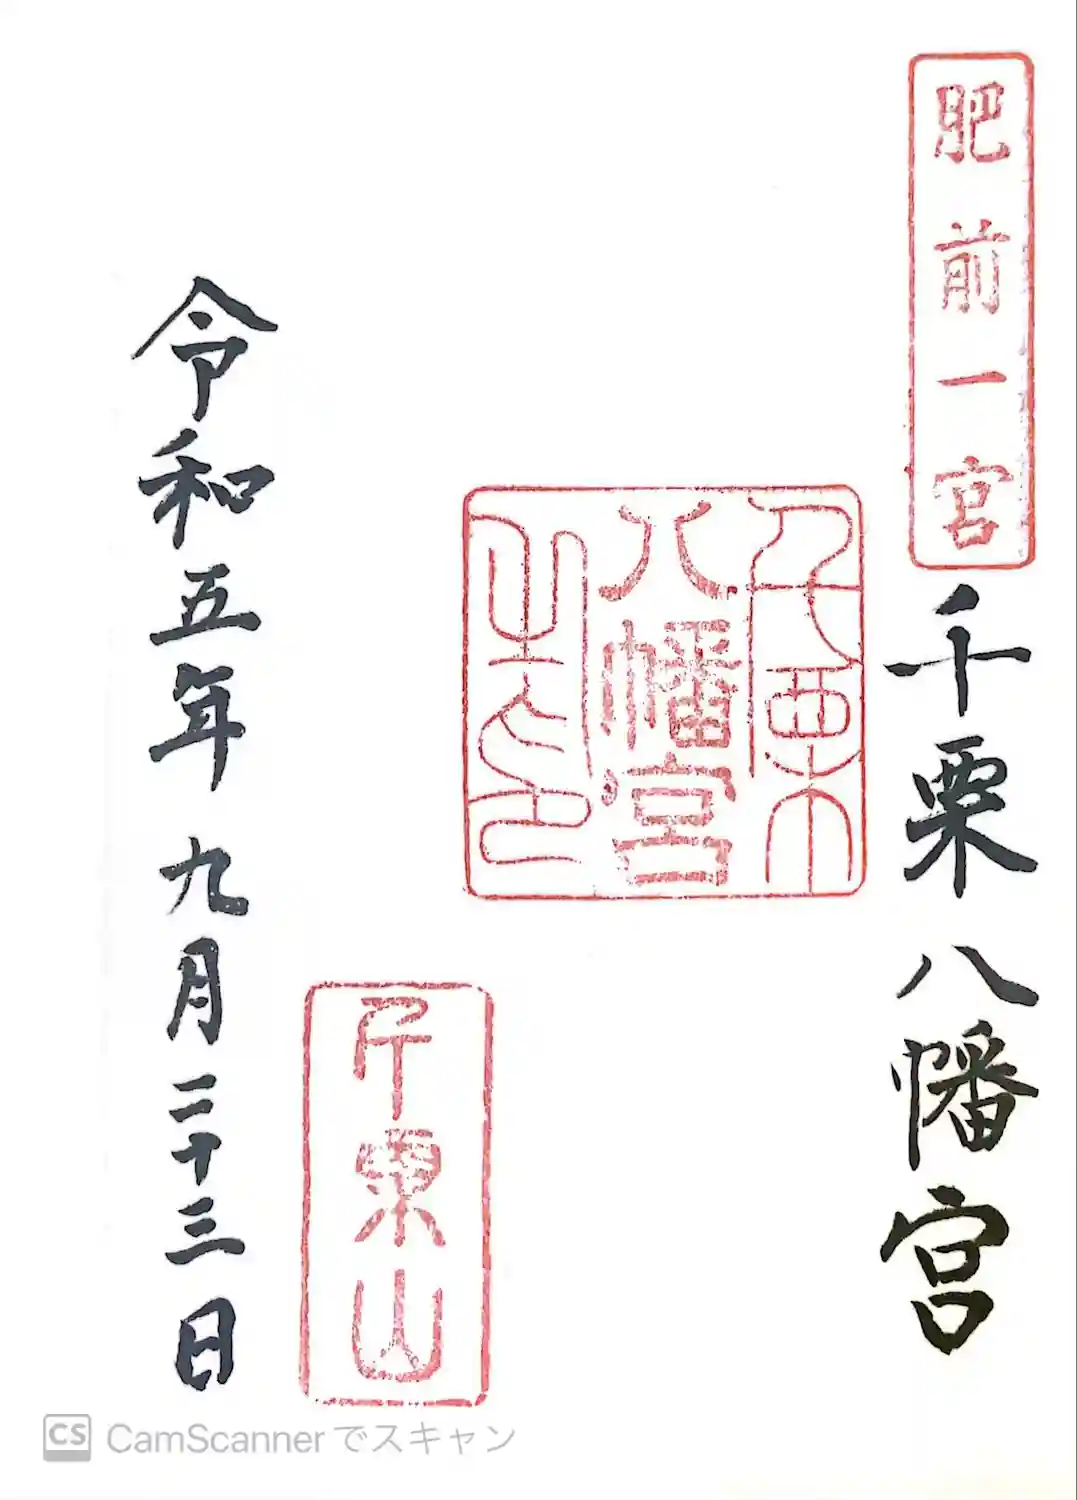 肥前一宮
千栗八幡宮
千栗
八幡宮
之印
千栗山
令和五年九月二十三日
CS CamScannerでスキャン